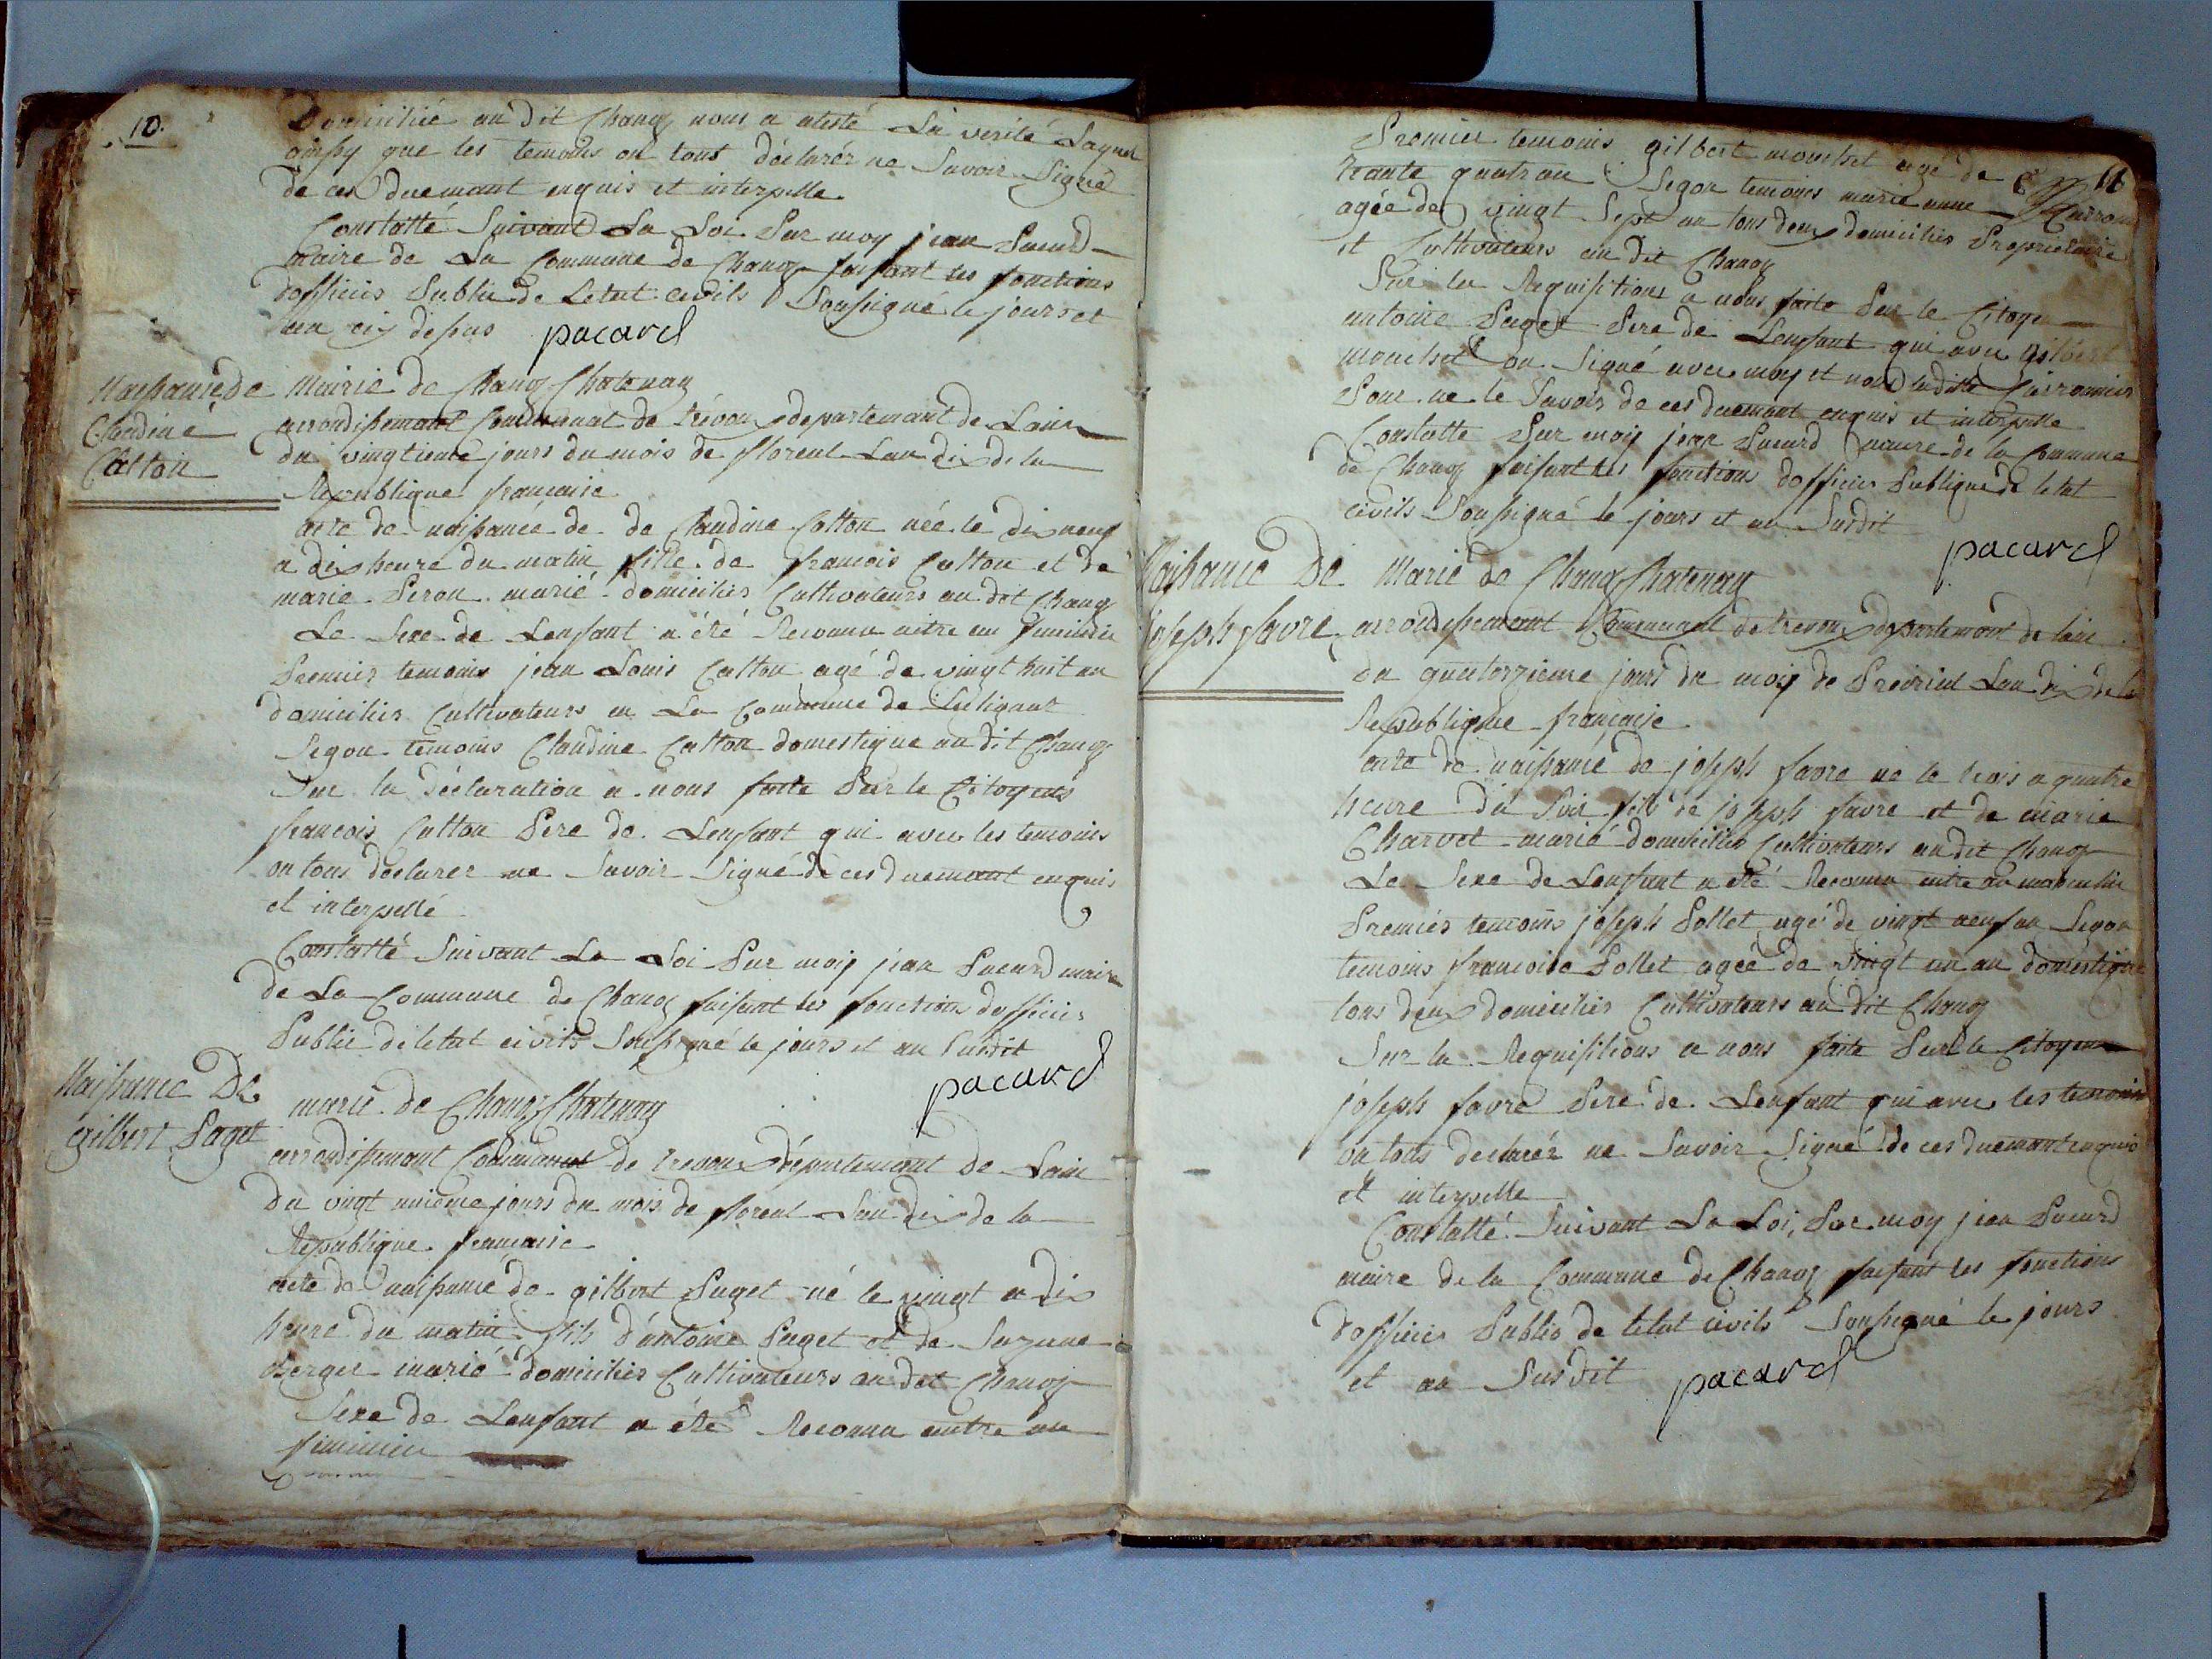 10.
Domiciliée au dit Chanoz nous a atesté La verité
que les temoins on tous déclarér ne Savoir Signé
de ces duemant enquis et interpelle
Constatté Suivant La Loi Par moy jean Pacard
Maire de La Commune de Chanoz faisant les fonctions
dofficiés Public de Letat civils Soussigné le jours et
an cy
pacard
Naissance de
Claudine
Catton
Mairie de Chanoz Chatenay
arrondissemant Communal de trévoux departemant de Lain
du vingtieme jours du mois de floreal Lan dix de la
Republique française
acte de naissance de de Claudine Catton née le dix neuf
a dix heure du matin fille de francois Catton et de
marie Peron marié domiciliés Cultivateurs au dit Chanoz
Le Sexe de Lenfant a été Reconnu estre au feminin
Premier temoins jean Louis Catton agé de vingt huit an
domiciliés Cultivateurs en La Commune de
Segon temoins Claudine Catton domestique au dit Chanoz
Sur la déclaration a nous faite Par le Citoyens
francois Catton Pere de Lenfant qui avec les temoins
on tous déclarer ne Savoir Signé de ces duemant enquis
et interpellé
Constatté Suivant La Loi Par moy jean Pacard maire
de La Commune de Chanoz faisant les fonctions dofficiés
Public de letat civils Soussigné le jours et an Susdit
pacard
Naissance De
gilbert Paget
marie de Chanoz Chatenay
arrondissemant Communal de trevoux département de Lain
du vingt unieme jours du mois de floreal Lan dix de la
Republique francaise
acte de naissance de gilbert Puget né le vingt a dix
heure du matin fils d'antoine Puget et de Suzane
Berger marié domiciliés Cultivateurs au dit Chanoz
Sexe de Lenfant a été Reconnu estre au
feminin
11
Premier temoins gilbert monchet agé de
trante quatr an Segon temoins marie anne
agée de vingt Sept an tous deux domiciliés Proprietaire
et Cultivateurs au dit Chanoz
Sur les Requisitions a nous faite Par le Citoyen
antoine Puget Pere de Lenfant qui avec gilbert
monchet on Signé avec moy et
Pour ne le Savoir de ces duemant enquis et interpelle
Constatte Par moy jean Pacard maire de la Commune
de Chanoz faisant les fonctions dofficiés Publique de letat
civils Soussigné le jours et an Susdit
pacard
Naissance De
joseph favre
Marie de Chanoz Chatenay
arrondissemant Communal de trevoux departemant de lain
du quatorzieme jours du mois de Preirial Lan dix de la
Republique française
acte de naissance de joseph favre né le trois a quatre
heure du Soir fils de joseph favre et de marie
Charvet marié domiciliés Cultivateurs au dit Chanoz
Le Sexe de Lenfant a été Reconnu estre au masculin
Premiés temoins joseph Pollet agé de vingt neuf an Segon
temoins francoise Pollet agée de vingt un an domestique
tous deux domiciliés Cultivateurs au dit Chanoz
Sur la Requisitions a nous faite Par le Citoyen
joseph favre Pere de Lenfant qui avec les temoins
on tous declarér ne Savoir Signé de ces duemant enquis
et interpelle
Constatté Suivant La Loi, Par moy jean Pacard
maire de la Commune de Chanoz faisant les fonctions
dofficiés Public de letat civils Soussigné le jours
et an Susdit
pacard